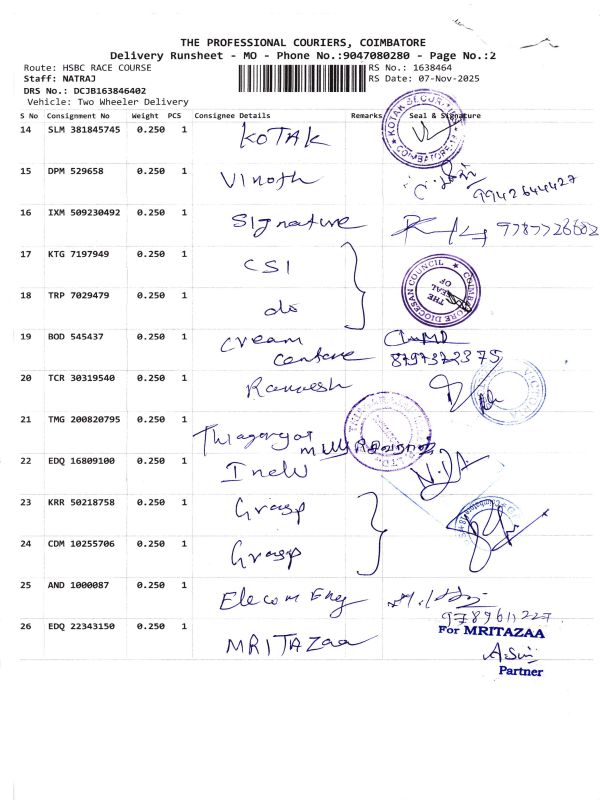 THE PROFESSIONAL COURIERS, COIMBATORE
Delivery Runsheet - MO - Phone No.:9047080280 - Page No.:2
Route: HSBC RACE COURSE RS No.: 1638464
Staff: NATRAJ RS Date: 07-Nov-2025
DRS No.: DCJB163846402
Vehicle: Two Wheeler Delivery
S No Consignment No Weight PCS Consignee Details Remarks Seal & Signature
14 SLM 381845745 0.250 1 KOTAK
KOTAK SECURITIES COIMBATORE
15 DPM 529658 0.250 1 Vinoth 9942644427
16 IXM 509230492 0.250 1 Signature 9787726682
17 KTG 7197949 0.250 1 CSI
COIMBATORE DIOCESAN COUNCIL
THE SEAL OF
18 TRP 7029479 0.250 1 do
19 BOD 545437 0.250 1 Cream
Centere 8797322375
20 TCR 30319540 0.250 1 Ramesh
21 TMG 200820795 0.250 1 Thiagarajar
Mills
22 EDQ 16809100 0.250 1
23 KRR 50218758 0.250 1 Grasp
24 CDM 10255706 0.250 1 Grasp
25 AND 1000087 0.250 1 Elecom Eng
9789611227
26 EDQ 22343150 0.250 1 MRITAZaa
For MRITAZAA
Partner